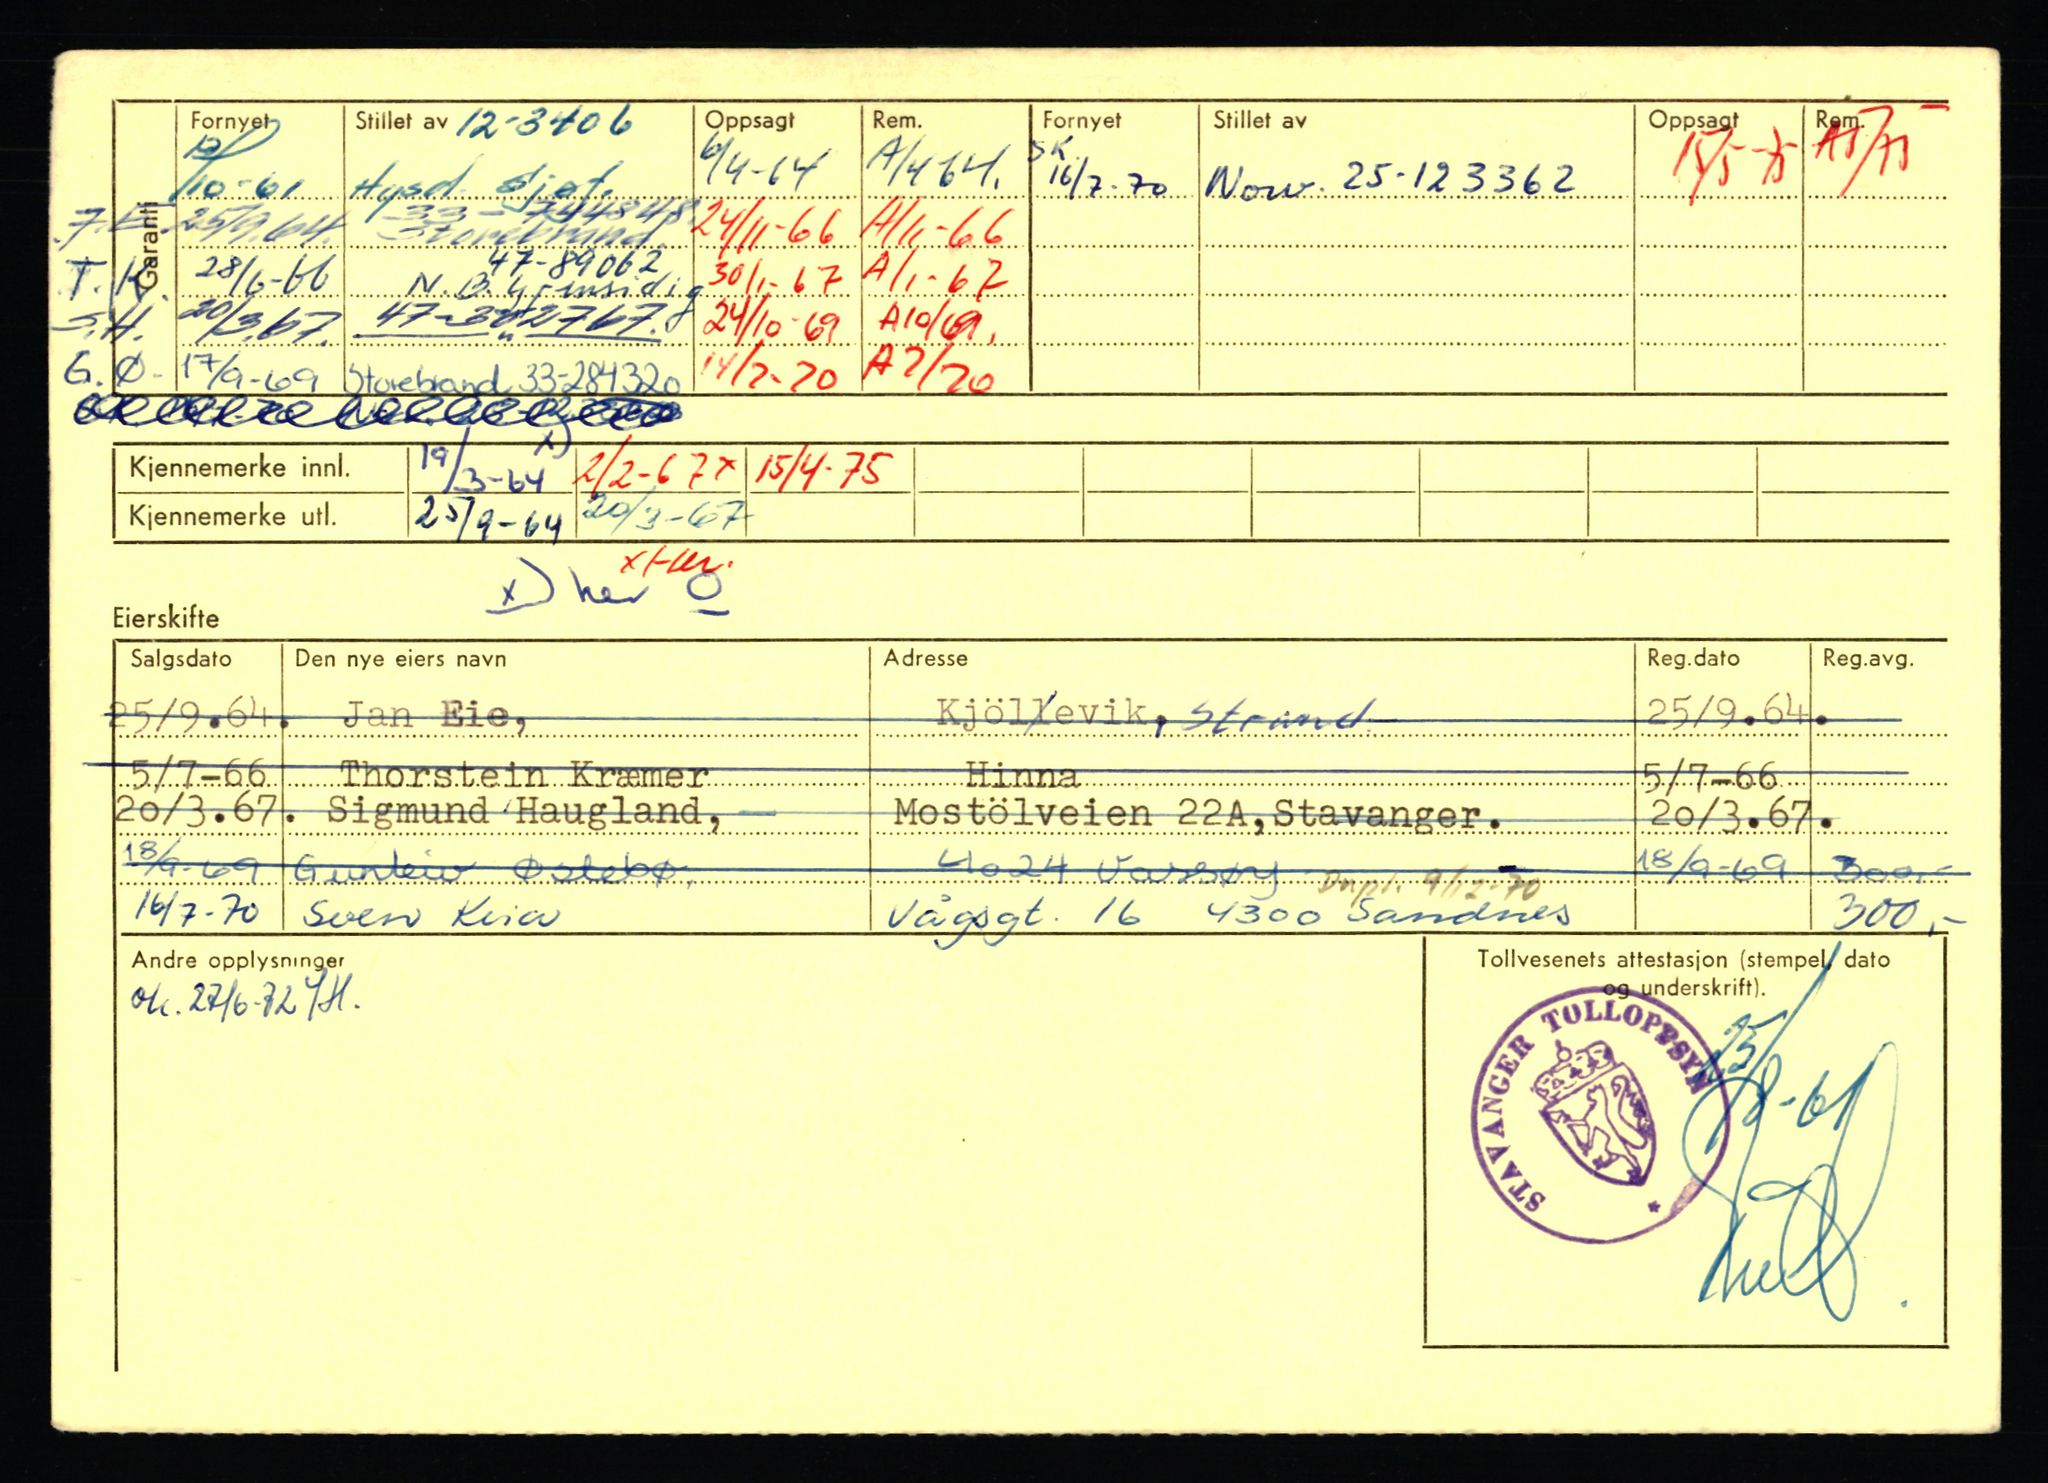 Garanti
Fornyet Stillet av 12-3406 Oppsagt Rem. Fornyet Stillet av Oppsagt Rem.
/10-61 6/4-64 A/4 64. SK. 16/7-70 Norw. 25-123362 15/5-75 A5/75
25/9.64. 33-744848 Storebrand. 24/11-66 A/11-66
T. K. 28/6-66 47-89062 N.B. Gjensidig 30/1-67 A/1-67
S.H. 20/3.67. 47-302767. 24/10-69 A10/69.
G. Ø- 17/9-69 Storebrand 33-284320 14/7-70 A7/70
Kjennemerke innl. 19/3-64 x) 2/2-67 x 15/4-75
Kjennemerke utl. 25/9-64 20/3-67
x) her
Eierskifte
Salgsdato Den nye eiers navn Adresse Reg.dato Reg.avg.
25/9.64. Jan Eie, Kjöllevik, Strand 25/9.64.
5/7-66 Thorstein Kræmer Hinna 5/7-66
20/3.67. Sigmund Haugland, Mostölveien 22A,Stavanger. 20/3.67.
18/9-69 Gunleiv Østebø. 4024 18/9-69 300,-
9/12-70
16/7-70 Sven Kvia Vågsgt. 16 4300 Sandnes 300,-
Andre opplysninger
ok. 27/6-72
Tollvesenets attestasjon (stempel, dato
og underskrift).
STAVANGER TOLLOPPSYN
25/8-61